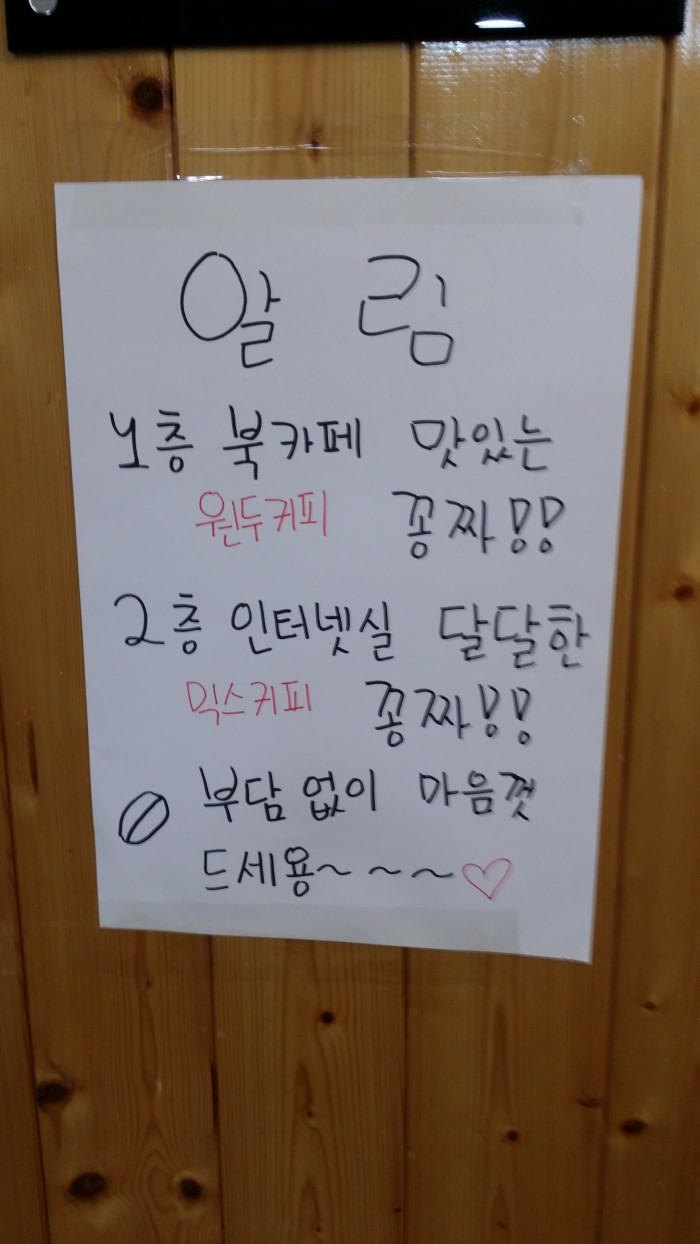 알 림
1층 북카페 맛있는
원두커피 꽁짜!!
2층 인터넷실 달달한
믹스커피 꽁짜!!
부담없이 마음껏
드세용~ ~ ~♡